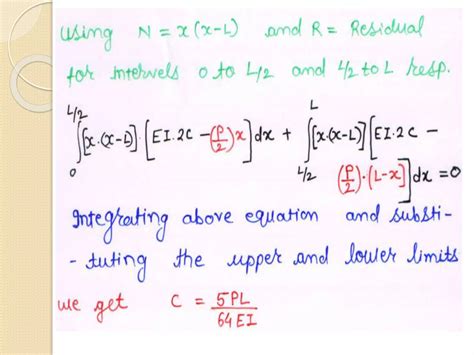 using N = x(x-L) and R = Residual
for intervels 0 to L/2 and L/2 to L resp.
∫₀^{L/2} [x.(x-L)].[EI.2C - (P/2)x]dx + ∫_{L/2}^{L} [x.(x-L)][EI.2C -
(P/2).(L-x)]dx = 0
Integrating above equation and substi-
-tuting the upper and lower limits
we get C = 5PL/64EI